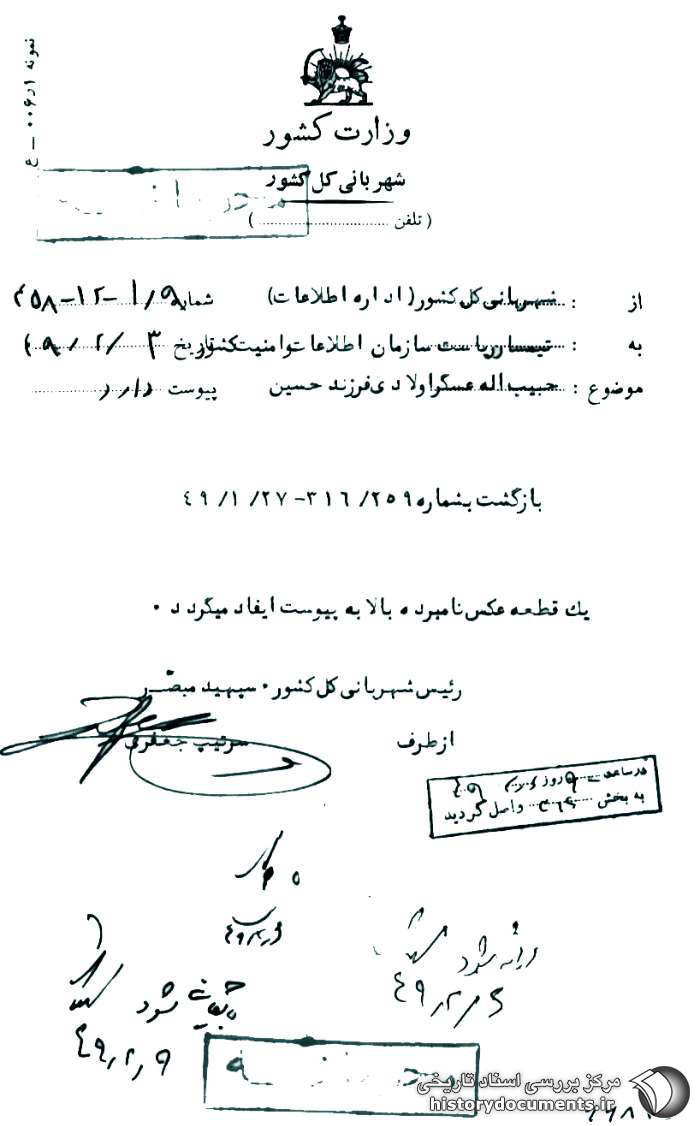 نمونه
وزارت کشور
شهربانی کل کشور
محرمانه
( تلفن .............................. )
از : شهربانی کل کشور ( اداره اطلاعات) شماره
به : تیمسار ریاست سازمان اطلاعات وامنیت کشور تاریخ ۴۹/۲/۳
موضوع : حبیب اله عسگراولادی فرزند حسین پیوست دارد
بازگشت بشماره ۳۱۶/۲۵۹- ۴۹/۱/۲۷
یك قطعه عکس نامبرده بالا به پیوست ایفاد میگردد ۰
رئیس شهربانی کل کشور۰ سپهبد مبصّر
ازطرف سرتیپ جعفری
در ساعت روز
به بخش ۳۱۶ واصل گردید
شود
۴۹/۲/۶
بایگانی شود
۴۹/۲/۹
محرمانه
مرکز بررسی اسناد تاریخی
historydocuments.ir